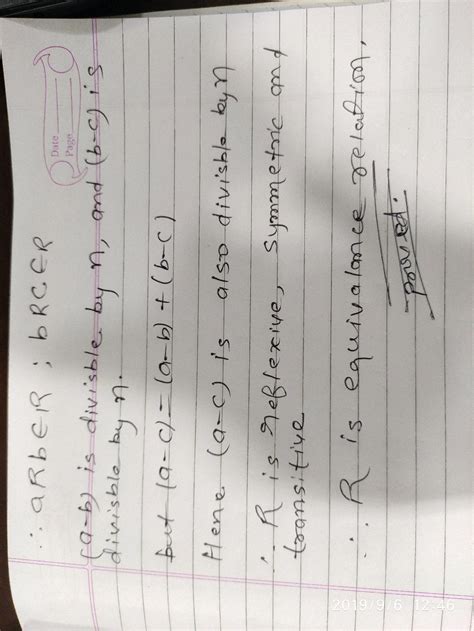 Date
Page
∴ aRb∈R ; bRC∈R
(a-b) is divisble by n, and (b-c) is
divisble by n.
but (a-c) = (a-b) + (b-c)
Hene (a-c) is also divisble by n
∴ R is reflexive, symmetric and
transitive
∴ R is equivalance relation.
proved.
2019/9/6 12:46